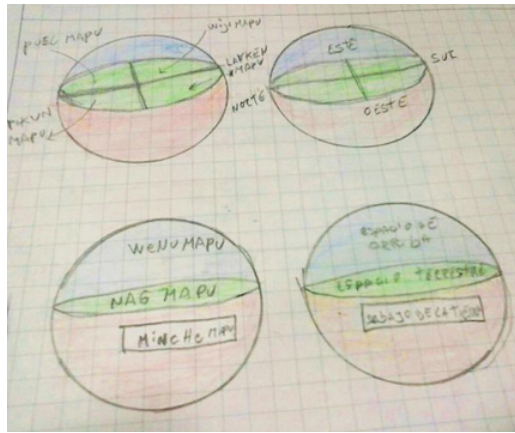 PUEL MAPU
WIJI MAPU
LAFKEN
MAPU
PIKUN
MAPU
ESTE
SUR
NORTE
OESTE
WENU MAPU
NAG MAPU
MINCHE MAPU
ESPACIO DE
ARRIBA
ESPACIO TERRESTRE
DEBAJO DE LA TIERRA